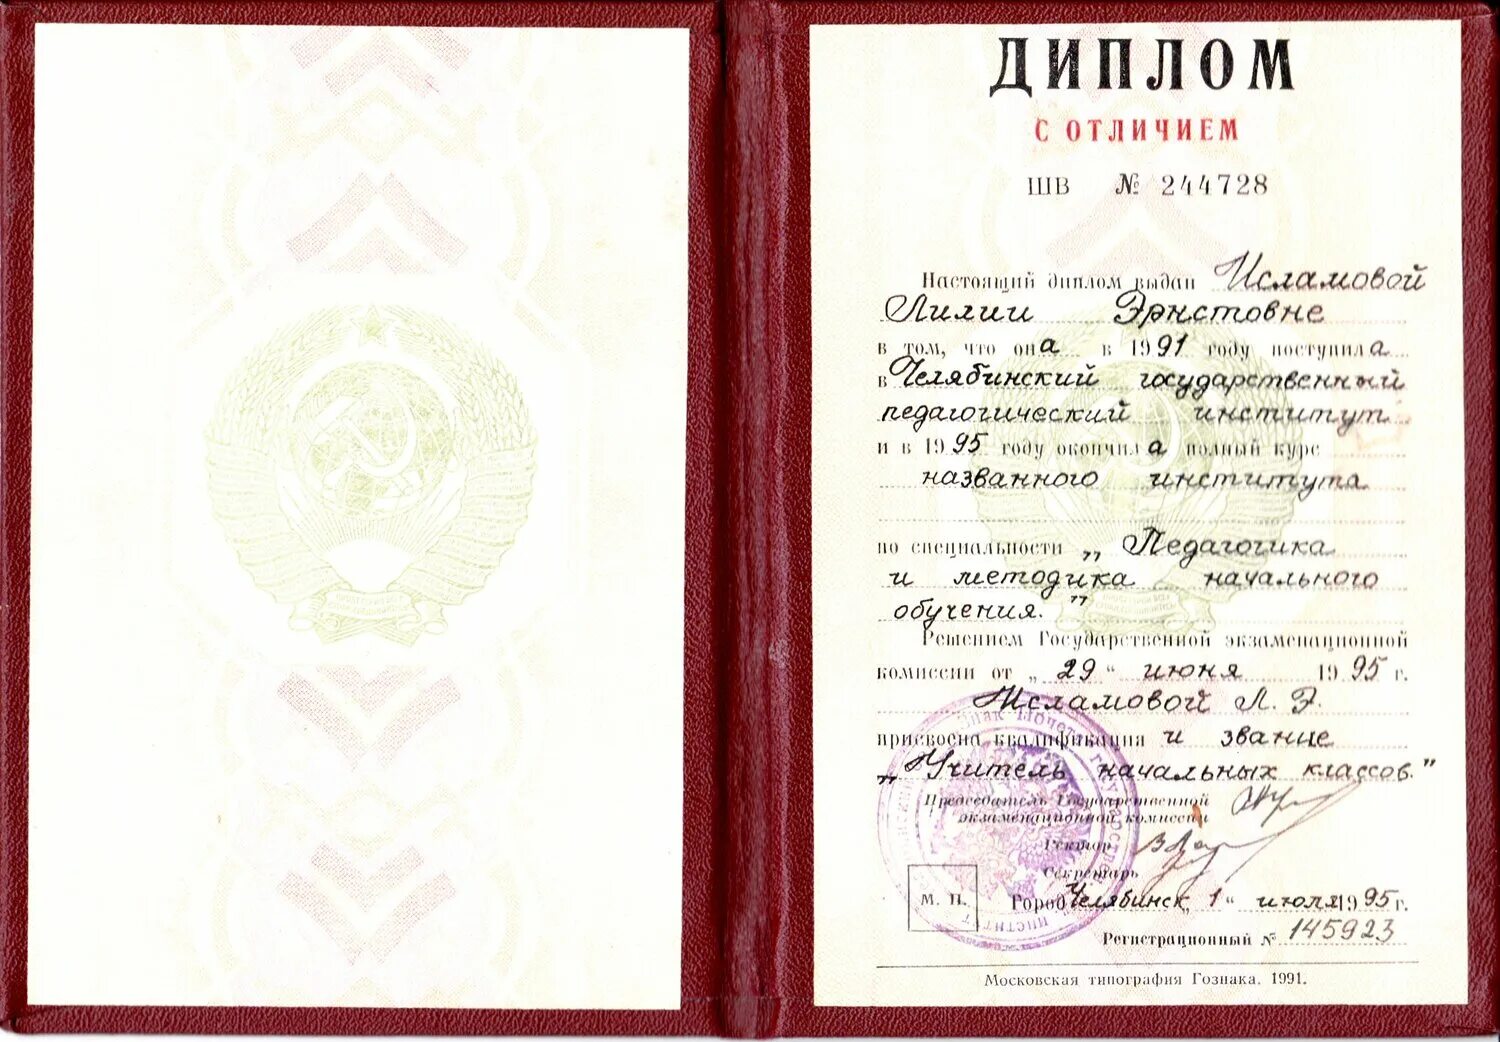 ДИПЛОМ
С ОТЛИЧИЕМ
ШВ № 244728
Настоящий диплом выдан Исламовой
Лилии Эрнстовне
в том, что она в 1991 году поступила
в Челябинский государственный
педагогический институт
и в 1995 году окончила полный курс
названного института
по специальности „Педагогика
и методика начального
обучения."
Решением Государственной экзаменационной
комиссии от „29" июня 1995 г.
Исламовой Л. Э.
присвоена квалификация и звание
„Учитель начальных классов."
Председатель Государственной
экзаменационной комиссии
Ректор
Секретарь
М. П. Город Челябинск „1" июля 1995 г.
Регистрационный № 145923
Московская типография Гознака. 1991.